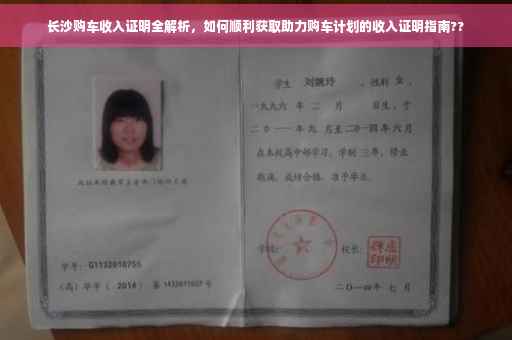 长沙购车收入证明全解析，如何顺利获取助力购车计划的收入证明指南??
学生 刘婉玲 ，性别 女 ，
一九九六 年 二 月 日生，于
二〇一一年 九 月至二〇一四年 六 月
在本校高中部学习，学制 三年，修业
期满，成绩合格，准予毕业。
学校： 校长：
学号：G1132010755
（高）毕字（ 2014 ）第 1432011007 号
二〇一四年 七 月